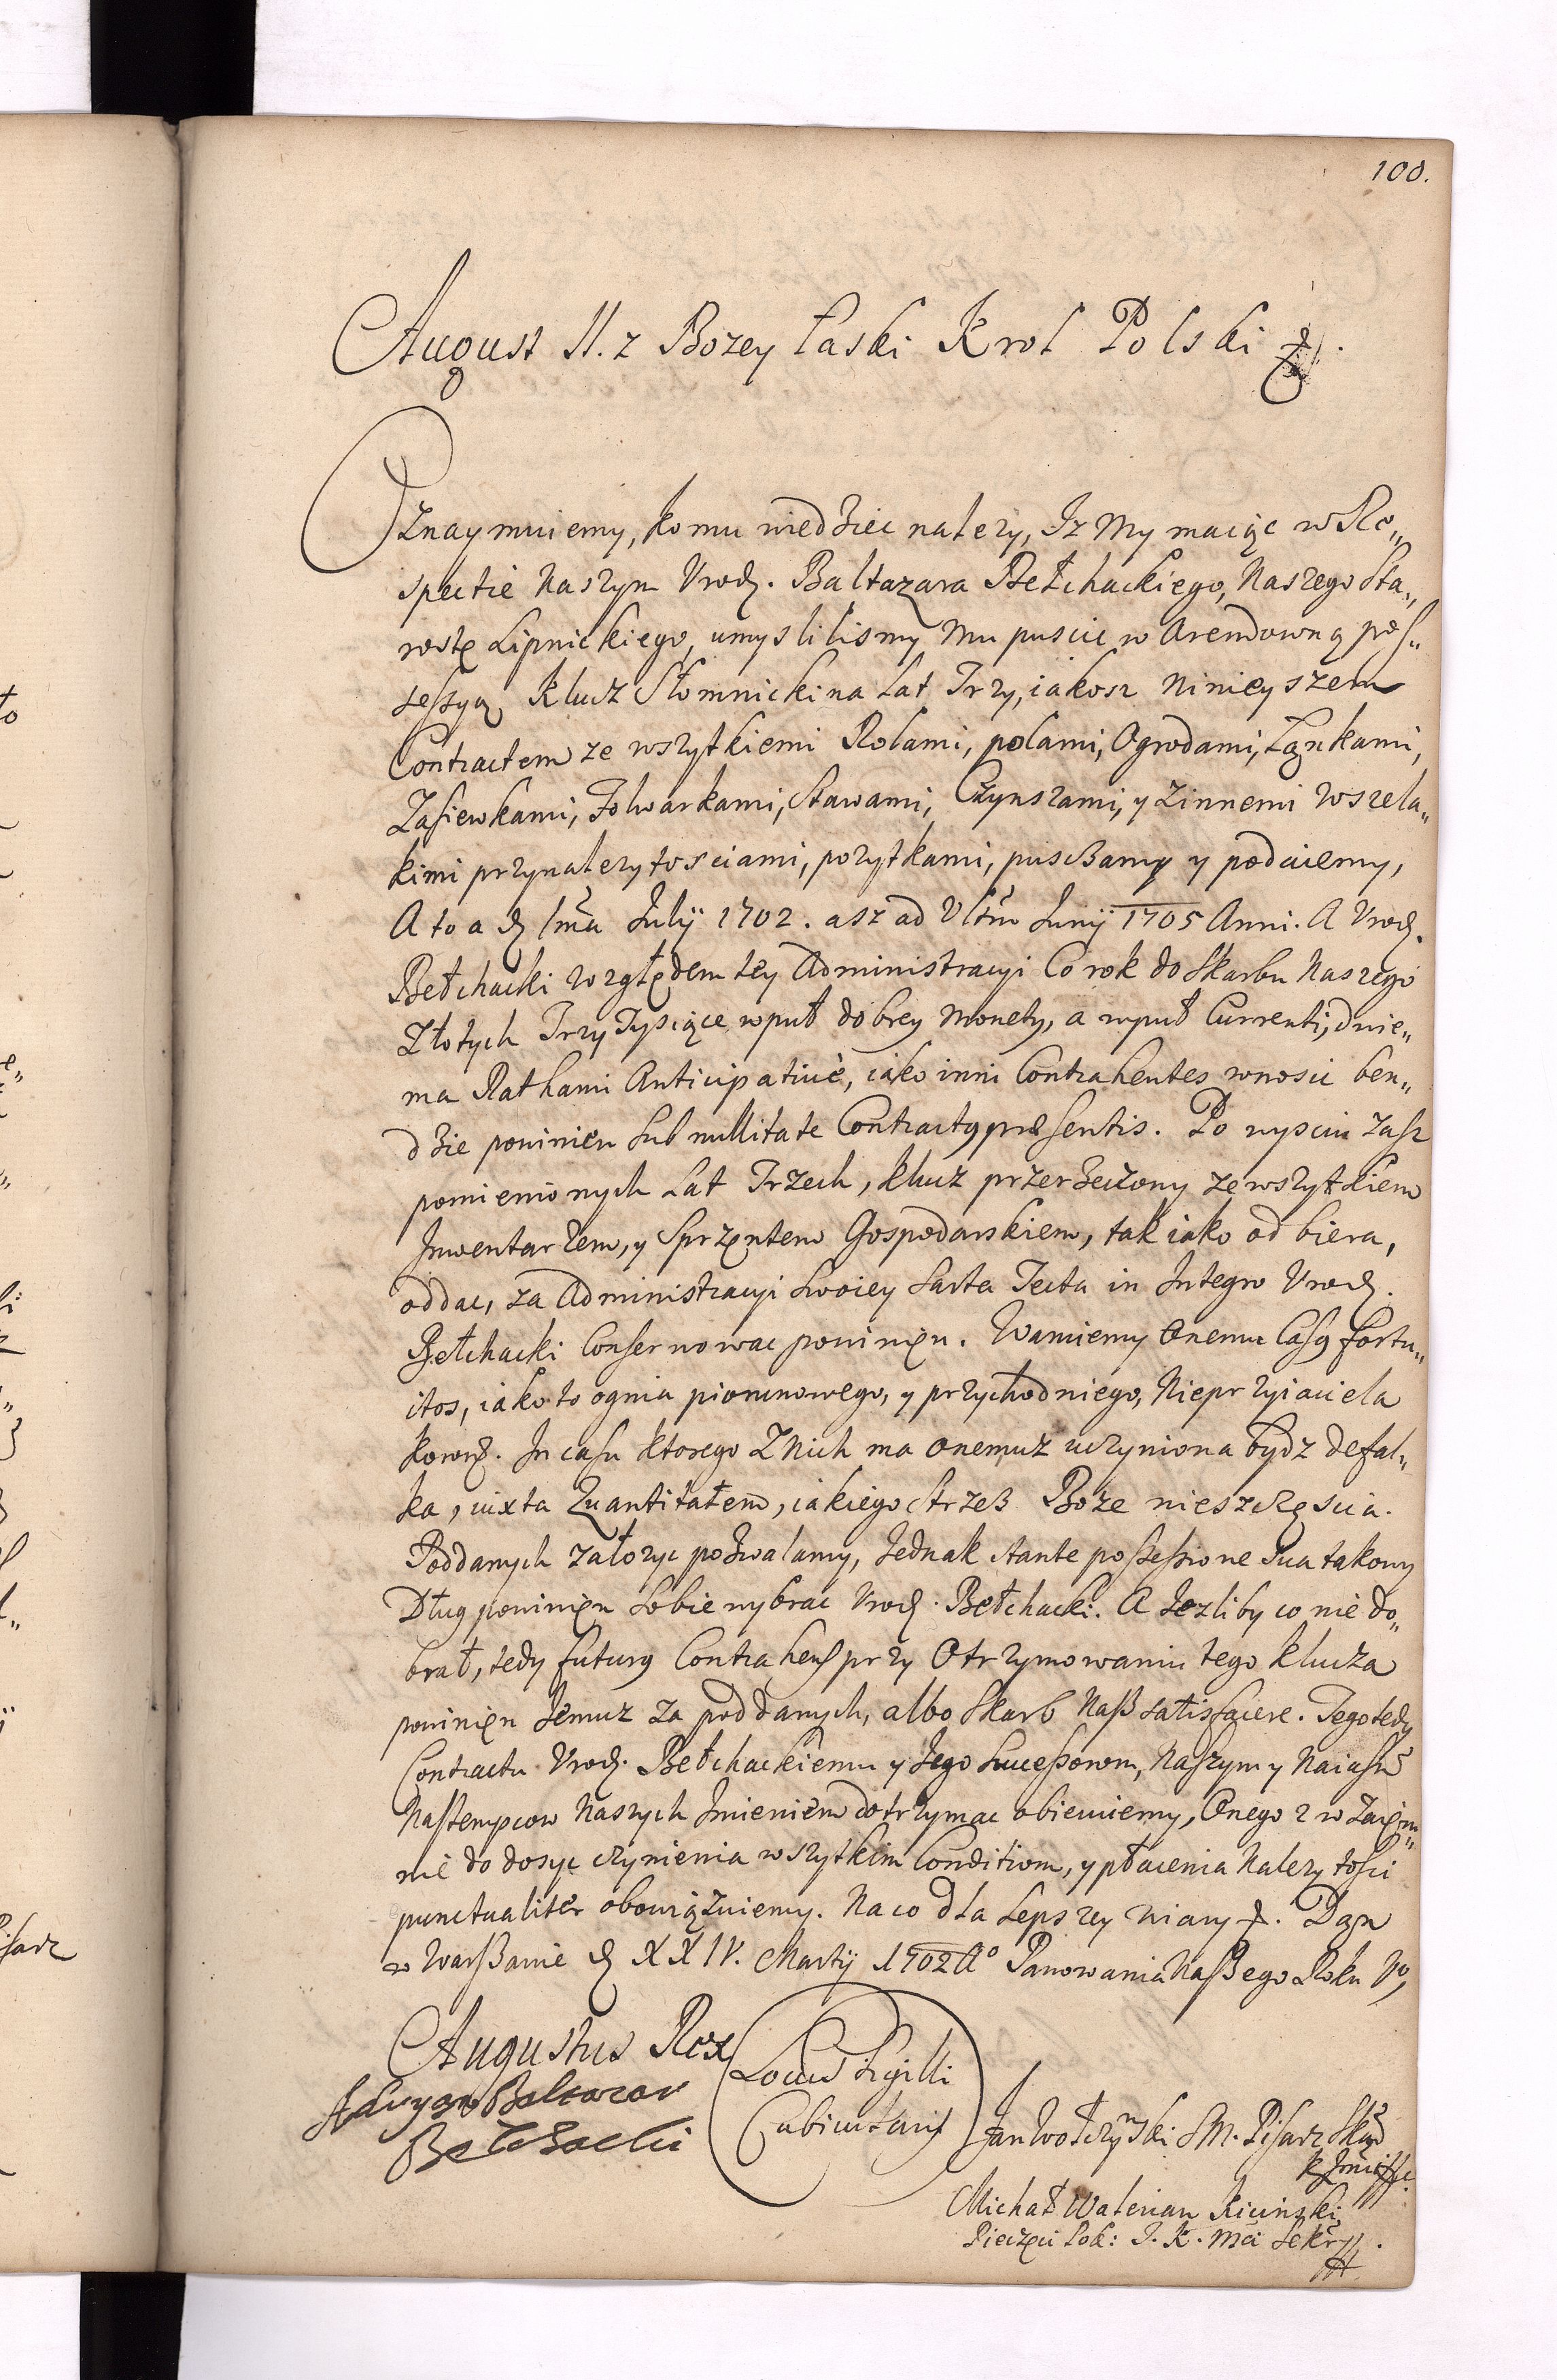 100.
August II. z Bozey Łaski Krol Polski
Oznaymuiemy, komu wiedziec nalezy, Iz My maiąc w Re„
spectie Naszym Urodz. Baltazara Bełchackiego, Naszego Sta„
rostę Lipnickiego, umyslilismy Mu puscic w Arendowną pos„
sessyą Klucz Słomnicki na Lat Trzy, iakosz Ninieyszem
Contractem ze wszytkiemi Rolami, polami, Ogrodami, Łąnkami,
Zasiewkami, Folwarkami, Stawami, Czynszami, y zinnemi wszela„
kimi przynalezytosciami, pozytkami, pusczamy y podaiemy,
A to a d. 1ma Julij 1702. asz ad Ultm Junij 1705 Anni. A Urodz.
Bełchacki względem tey Administracyi Co rok do Skarbu Naszego
Złotych Trzy Tysiące wpuł dobrey Monety, a wpuł Currenti, dwie„
ma Rathami Anticipative, iako inni Contrahentes wnosic ben„
dzie powinien sub nullitate Contractus præsentis. Po wysciu zasz
pomienionych Lat Trzech, klucz przerzeczony ze wszytkiem
Inwentarzem, y Sprzęntem Gospodarskiem, tak iako odbiera,
oddac, za Administracyi swoiey Sarta Tecta in Integro Urodz.
Bełchacki Conserwowac powinięn. Waruiemy Onemu Casus fortu„
itos, iako to ognia piorunowego, y przychodniego, Nieprzyiaciela
koronę. In casu ktorego z Nich ma onemuz uczyniona bydz defal„
ka, iuxta Quantitatem, iakiego strzez Boze nieszczęscia.
Poddanych załozyc pozwalamy, Jednak stante possessione sua takowy
Dług powinięn sobie wybrac Urodz. Bełchacki. A Jezliby co nie do„
brał, tedy futurus Contrahens przy Otrzymowaniu tego klucza
powinięn Jemuz za poddanych, albo Skarb Nasz satisfacere. Tego tedy
Contractu Urodz. Bełchackiemu y Jego Successorom, Naszym y Naiasn
Nastempcow Naszych Imieniem dotrzymac obiecuiemy, Onego z wzaięm„
nie do dosyc czynienia wszytkim Conditiom, y płacenia Nalezytosci
punctualiter obowiązuiemy. Na co dla Lepszey wiary. Dąn
w Warszawie d. XXIV. Martij 1702 Ao Panowania Naszego Roku Vo
Augustus Rex
Locus Sigilli
Cubicularis
Baltazar
Bełchacki
Jan Wołczynski SM. Pisarz Skar
Michał Walerian Kicinski
Pieczęci Pok: J. K. Mci Sekr.